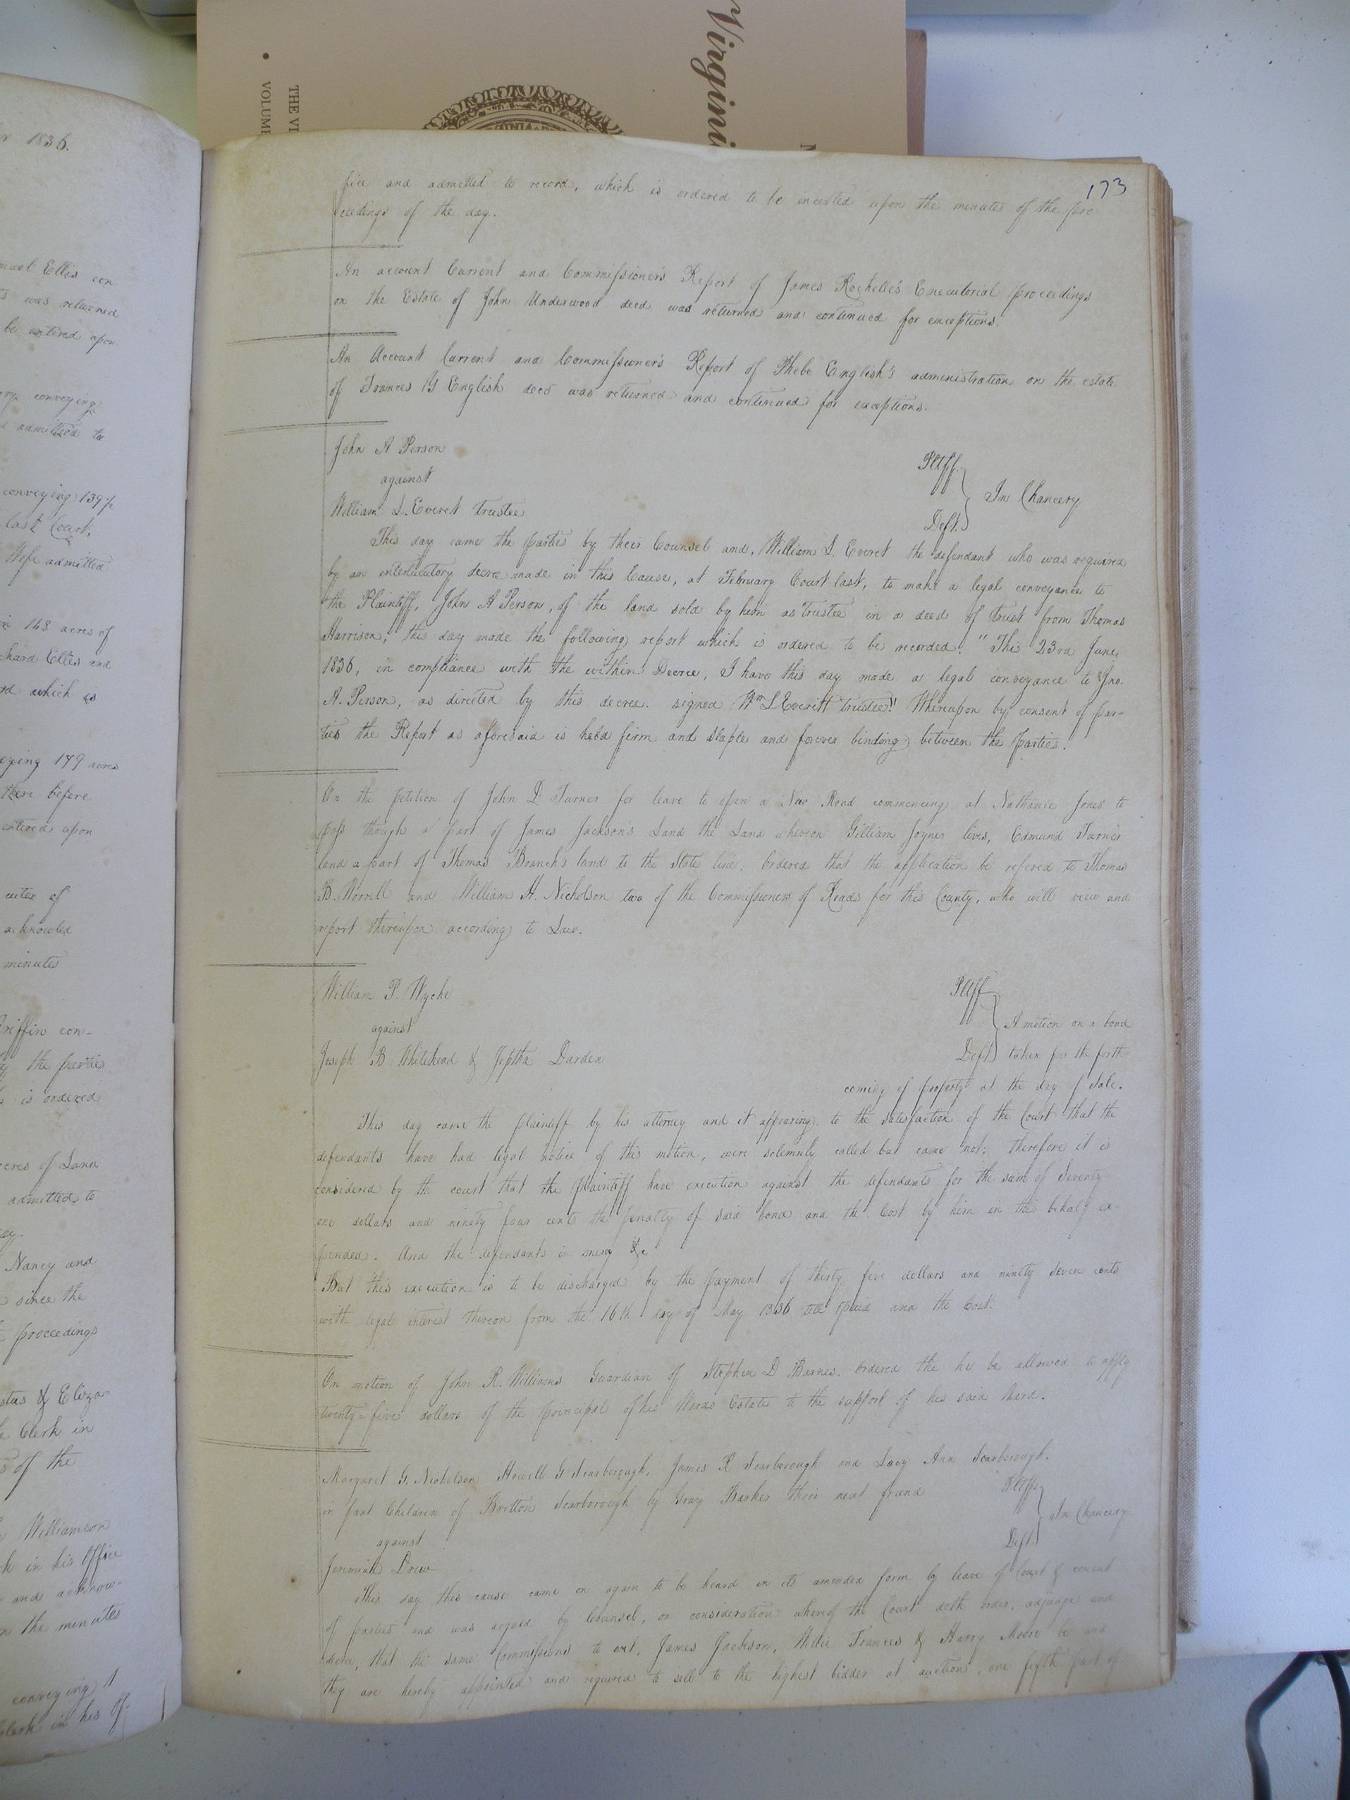 Virgini
THE VI
VOLUME
r 1836.
muel Ellis con
was returned
be entered upon
conveying
admitted to
conveying 139½
last Court,
Wife admitted
143 acres of
chard Ellis and
rd which is
eying 179 acres
there before
entered upon
cuter of
acknowled
minutes
Griffin con-
the parties
is ordered
acres of Land
admitted to
Nancy and
since the
proceedings
& Eliza-
Clerk in
of the
Williamson
k in his Office
and acknow-
n the minutes
conveying 1
Clerk in his Of-
173
fice and admitted to record, which is ordered to be inserted upon the minutes of the pro
ceedings of the day.
An account Current and Commissioner's Report of James Rochelle's Executorial proceedings
on the Estate of John Underwood decd was returned and continued for exceptions.
An Account Current and Commissioner's Report of Phebe English's administration on the estate
of Frances English decd was returned and continued for exceptions.
John A Person
Pltff.
against
In Chancery
William L. Everet trustee
Deft.
This day came the parties by their Counsel and, William L. Everet the defendant who was required
by an interlocutory decree made in this Cause, at February Court last, to make a legal conveyance to
the Plaintiff, John A Person, of the land sold by him as trustee in a deed of trust from Thomas
Harrison, this day made the following report which is ordered to be recorded. "This 23rd June
1836, in compliance with the within Decree, I have this day made a legal conveyance to Jno.
A. Person, as directed by this decree. signed Wm L Everitt trustee" Whereupon by consent of par-
ties the Report as aforesaid is held firm and staple and forever binding between the parties.
On the petition of John D Turner for leave to open a New Road commencing at Nathaniel Jones to
pass though a part of James Jackson's Land the Land whereon Gilliam Joyner lives, Edmund Turner
land a part of Thomas Branch's land to the State line. Ordered that the application be refered to Thomas
B. Worrell and William H. Nicholson two of the Commissioners of Roads for this County, who will view and
report thereupon according to Law.
William P. Wyche
Pltff
against
A motion on a bond
Joseph B Whitehead & Jeptha Darden
Defts taken for the forth
coming of property at the day of sale.
This day came the plaintiff by his attorney and it appearing to the satisfaction of the Court that the
defendants have had legal notice of this motion, were solemnly called but came not; therefore it is
considered by the court that the plaintiff have execution against the defendants for the sum of Seventy
one dollars and ninety four cents the penalty of said bond and the Cost by him in this behalf ex-
pended. And the defendants in mercy &c
But this execution is to be discharged by the payment of thirty five dollars and ninety seven cents
with legal interest thereon from the 16th day of May 1836 till paid and the Cost.
On motion of John R. Williams Guardian of Stephen D Barnes. Ordered the he be allowed to apply
twenty-five dollars of the principal of his Wards Estate to the support of his said Ward.
Margaret G. Nicholson Howell G Scarborough, James R Scarborough and Lucy Ann Scarborough.
in fant Children of Britton Scarborough by Gray Barker their next friend
Pltffs
against
In Chancery
Deft
Jeremiah Drew
This day this cause came on again to be heard in its amended form by leave of Court & consent
of parties and was argued by Counsel, on consideration whereof the Court doth order, adjudge and
decree, that the same Commissioners to wit, James Jackson, Francis & Harry Moore be and
they are hereby appointed and required to sell to the highest bidder at auction, one fifth part of